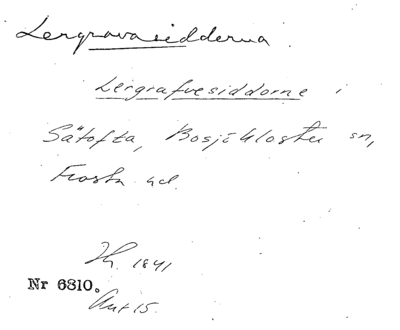 Lergravasidderna.
Lergrafvesiddorne i
Sätofta, Bosjökloster sn,
Frosta hd.
1841
Nr 6810.
Akt 15.